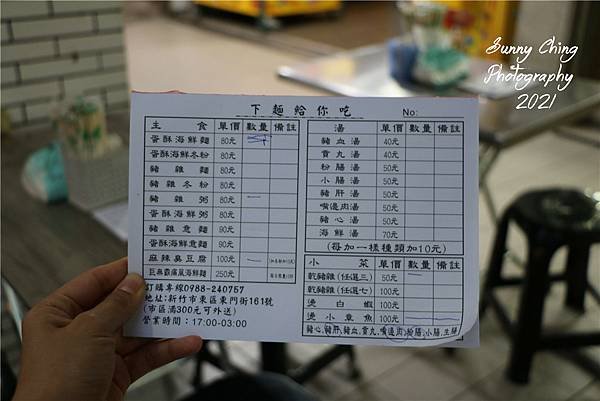 Sunny Ching
Photography
2021
下麵給你吃 No:
主 食 單價 數量 備註
蛋酥海鮮麵 80元
蛋酥海鮮冬粉 80元
豬雜麵 80元
豬雜冬粉 80元
豬雜粥 80元
蛋酥海鮮粥 80元
豬雜意麵 90元
蛋酥海鮮意麵 90元
麻辣臭豆腐 100元
巨無霸痛風海鮮麵 250元
訂購專線0988-240757
地址:新竹市東區東門街161號
(市區滿300元可外送)
營業時間:17:00-03:00
湯 單價 數量 備註
豬血湯 40元
貢丸湯 40元
粉腸湯 50元
小腸湯 50元
豬肝湯 50元
嘴邊肉湯 50元
豬心湯 50元
海鮮湯 70元
(每加一樣種類加10元)
小 菜 單價 數量 備註
乾豬雜(任選三) 50元
乾豬雜(任選七) 100元
燙白蝦 100元
燙小章魚 100元
豬心,豬肝,豬血,貢丸,嘴邊肉,粉腸,小腸,生腸